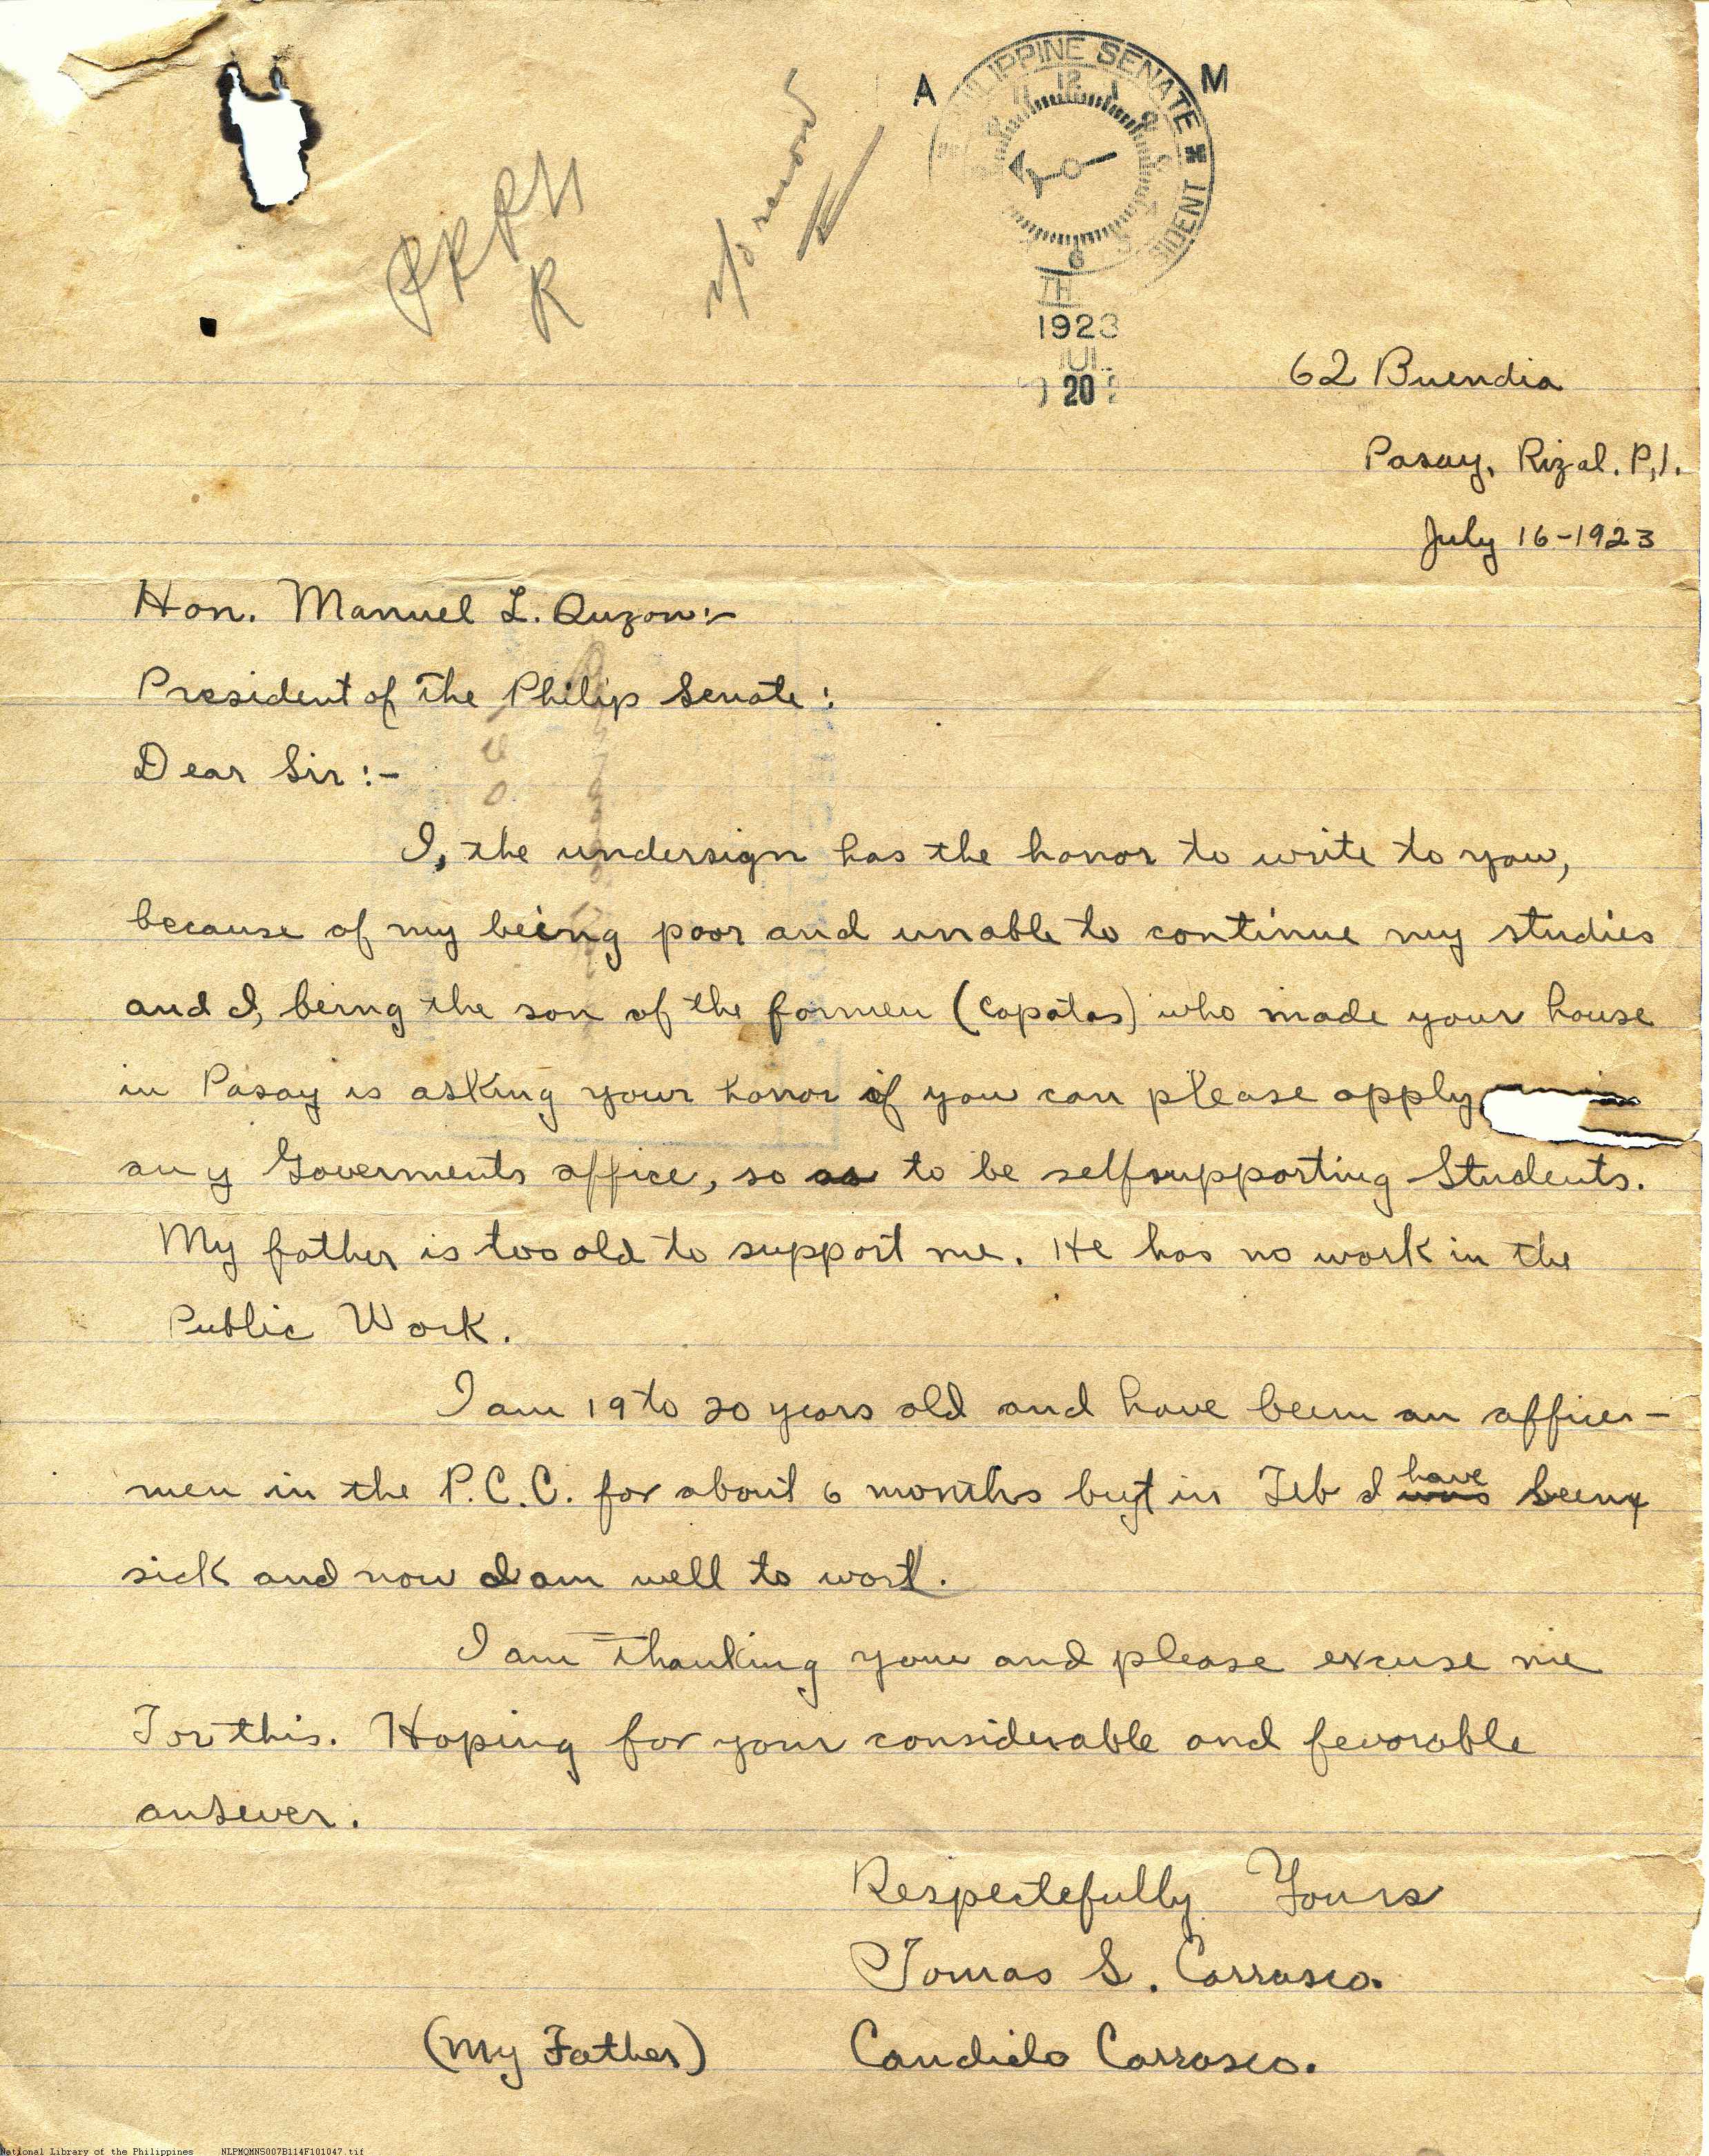 A M
PHILIPPINE SENATE
IDENT
1923
JUL
20
PRRH
R
62 Buendia
Pasay, Rizal. P.I.
July 16-1923
Hon. Manuel L. Quzon:-
President of the Philip Senate:
Dear Sir:-
I, the undersign has the honor to write to you,
because of my being poor and unable to continue my studies
and I, being the son of the formen (Capatas) who made your house
in Pasay is asking your honor if you can please apply
any Goverments office, so as to be selfsupporting Students.
My father is too old to support me. He has no work in the
Public Work.
I am 19 to 20 years old and have been an offices-
men in the P.C.C. for about 6 months but in Feb I have being
sick and now I am well to work.
I am thanking you and please excuse me
For this. Hoping for your considerable and fevorable
answer.
Respectefully Yours
Tomas S. Carrasco.
(My Father) Candido Carrasco.
National Library of the Philippines NLPMQMNS007B114F101047.tif